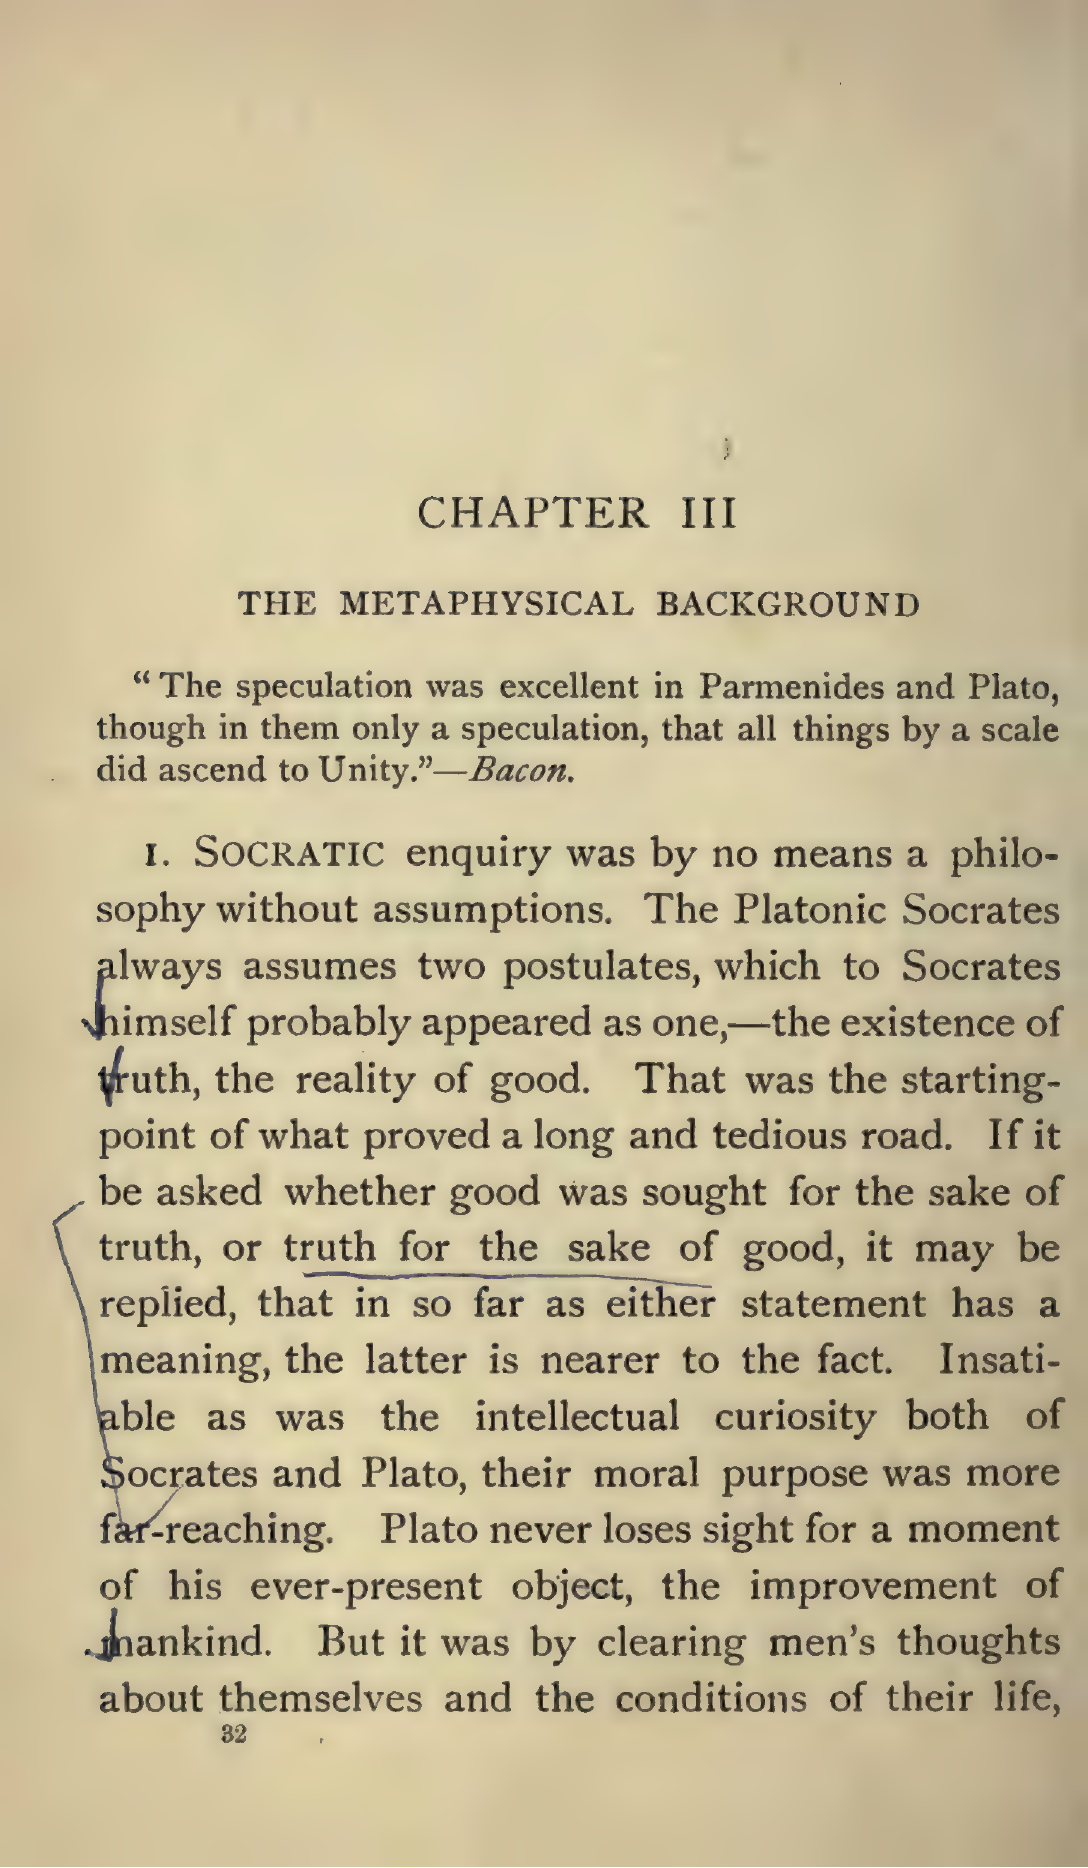 CHAPTER III
THE METAPHYSICAL BACKGROUND
“ The speculation was excellent in Parmenides and Plato,
though in them only a speculation, that all things by a scale
did ascend to Unity.”—Bacon.
1. SOCRATIC enquiry was by no means a philo-
sophy without assumptions. The Platonic Socrates
always assumes two postulates, which to Socrates
himself probably appeared as one,—the existence of
truth, the reality of good. That was the starting-
point of what proved a long and tedious road. If it
be asked whether good was sought for the sake of
truth, or truth for the sake of good, it may be
replied, that in so far as either statement has a
meaning, the latter is nearer to the fact. Insati-
able as was the intellectual curiosity both of
Socrates and Plato, their moral purpose was more
far-reaching. Plato never loses sight for a moment
of his ever-present object, the improvement of
mankind. But it was by clearing men’s thoughts
about themselves and the conditions of their life,
32